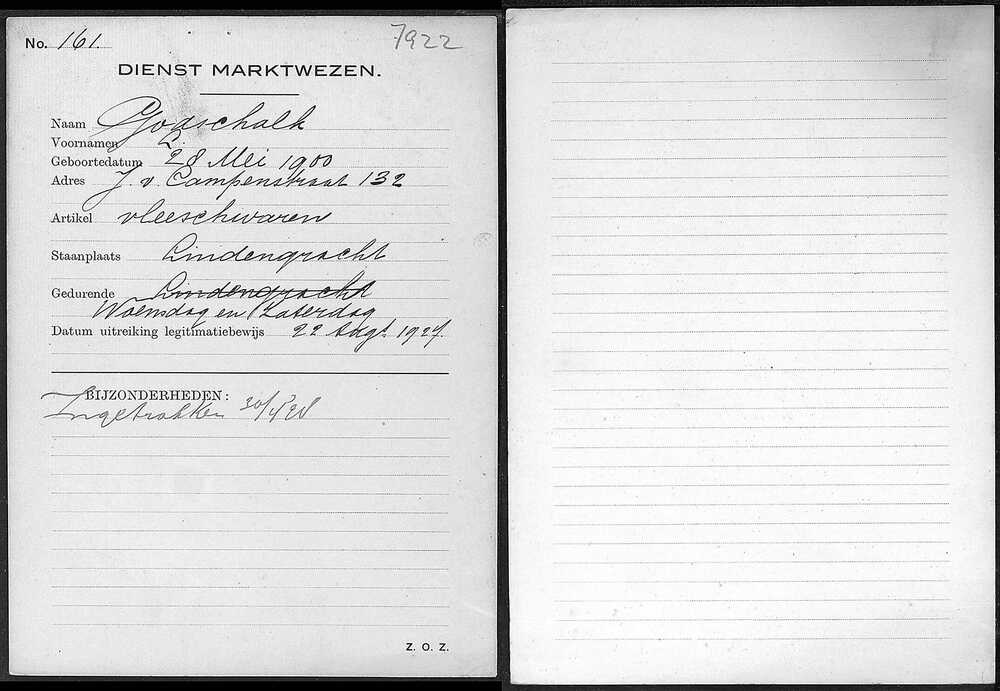 No. 161.
7922
DIENST MARKTWEZEN.
Naam Godschalk
Voornamen
Geboortedatum 28 Mei 1900
Adres J. v. Campenstraat 132
Artikel vleeschwaren
Staanplaats Lindengracht
Gedurende Lindengracht
Woensdag en Zaterdag
Datum uitreiking legitimatiebewijs 22 Augt 1927.
BIJZONDERHEDEN:
Ingetrokken
Z. O. Z.